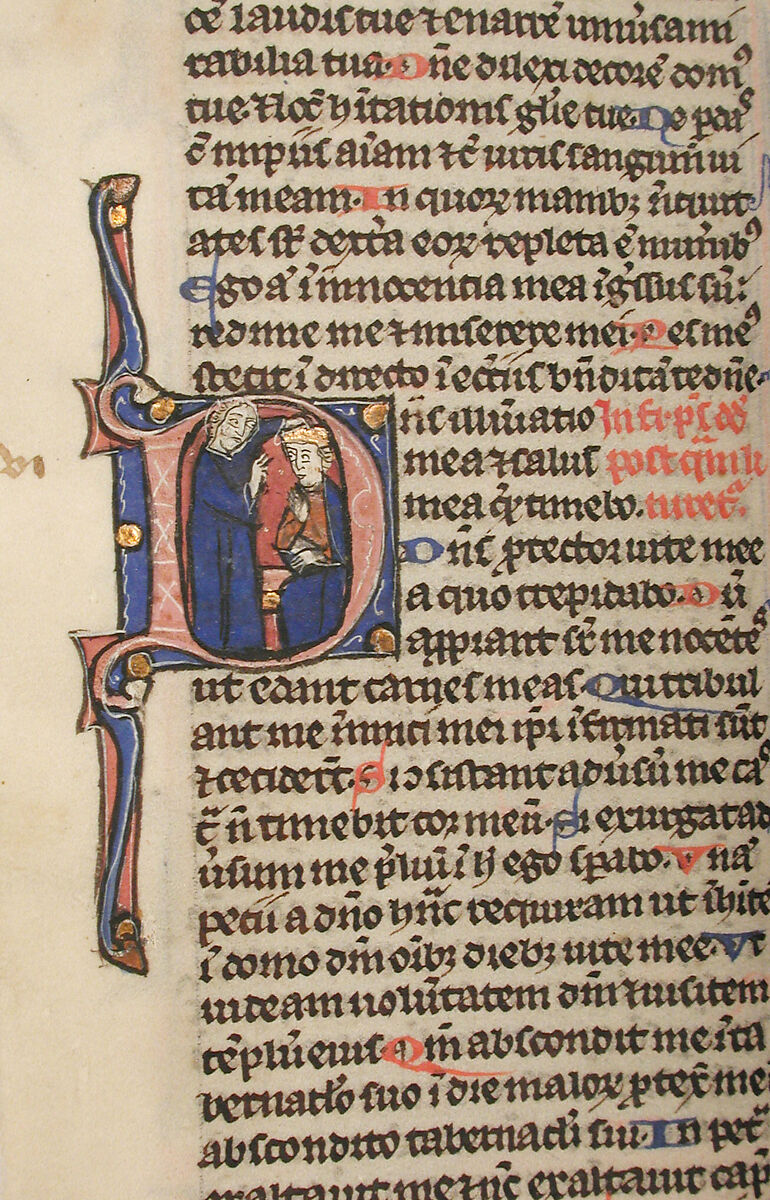 cē laudis tue ⁊ enarrē uniūsa mi
rabilia tua. Dñe dilexi decorē dom᷒
tue. ⁊ locū hītationis gl̄ie tue. Ne pdas
c̄ impiis aīam ⁊ c̄ uiris sanguinū ui
tā meam. In quoꝝ manibꝫ iñiquit
ates st̄ dext̄a eoꝝ repleta ē munīb᷒
Ego aū ī innocentia mea īgr̄ssus sū:
redime me ⁊ miserere mei. Pes me᷒
stetit ī directo ī eccl̄iis bn̄dicā te dn̄e.
Dn̄s illūiatio In fi. ps̄ dd̄
mea ⁊ salus
mea q̄ timebo.
Dn̄s ꝓtector uite mee
a quo trepidabo. Dū
appiant sr̄ me nocētes
ut edant carnes meas. Qui tribul
ant me īimici mei ip̄i īfirmati sūt
⁊ ceciderūt. Si ↄsistant adūsū me cas
tr̄ n̄ timebit cor meū. Si exurgat ad
ūsum me pl̄iū ī h̄ ego sꝑabo. Vnā
petii a dn̄o hāc requiram ut īhitē
ī domo dn̄i oībꝫ diebꝫ uite mee. Vt
uideam uolūtatem dn̄i ⁊ uisitem
tēplū eius. Qm̄ abscondit me ī ta
bernac̄lo suo ī die maloꝝ ꝓtex̄ me
abscondito tabernacl̄i sui. In pet̄
exaltauit me ⁊ nc̄ exaltauit cap̄
vi